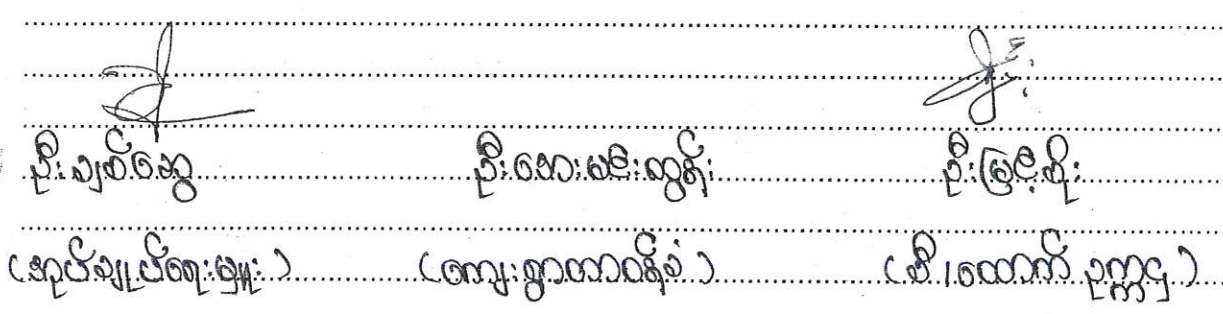 ဦးချစ်ဆွေ ဦးအေးမင်းထွန်း ဦးမြင့်စိုး
(အုပ်ချုပ်ရေးမှူး) (ကျေးရွာတာဝန်ခံ) (စီ/ထောက် ဥက္ကဌ)